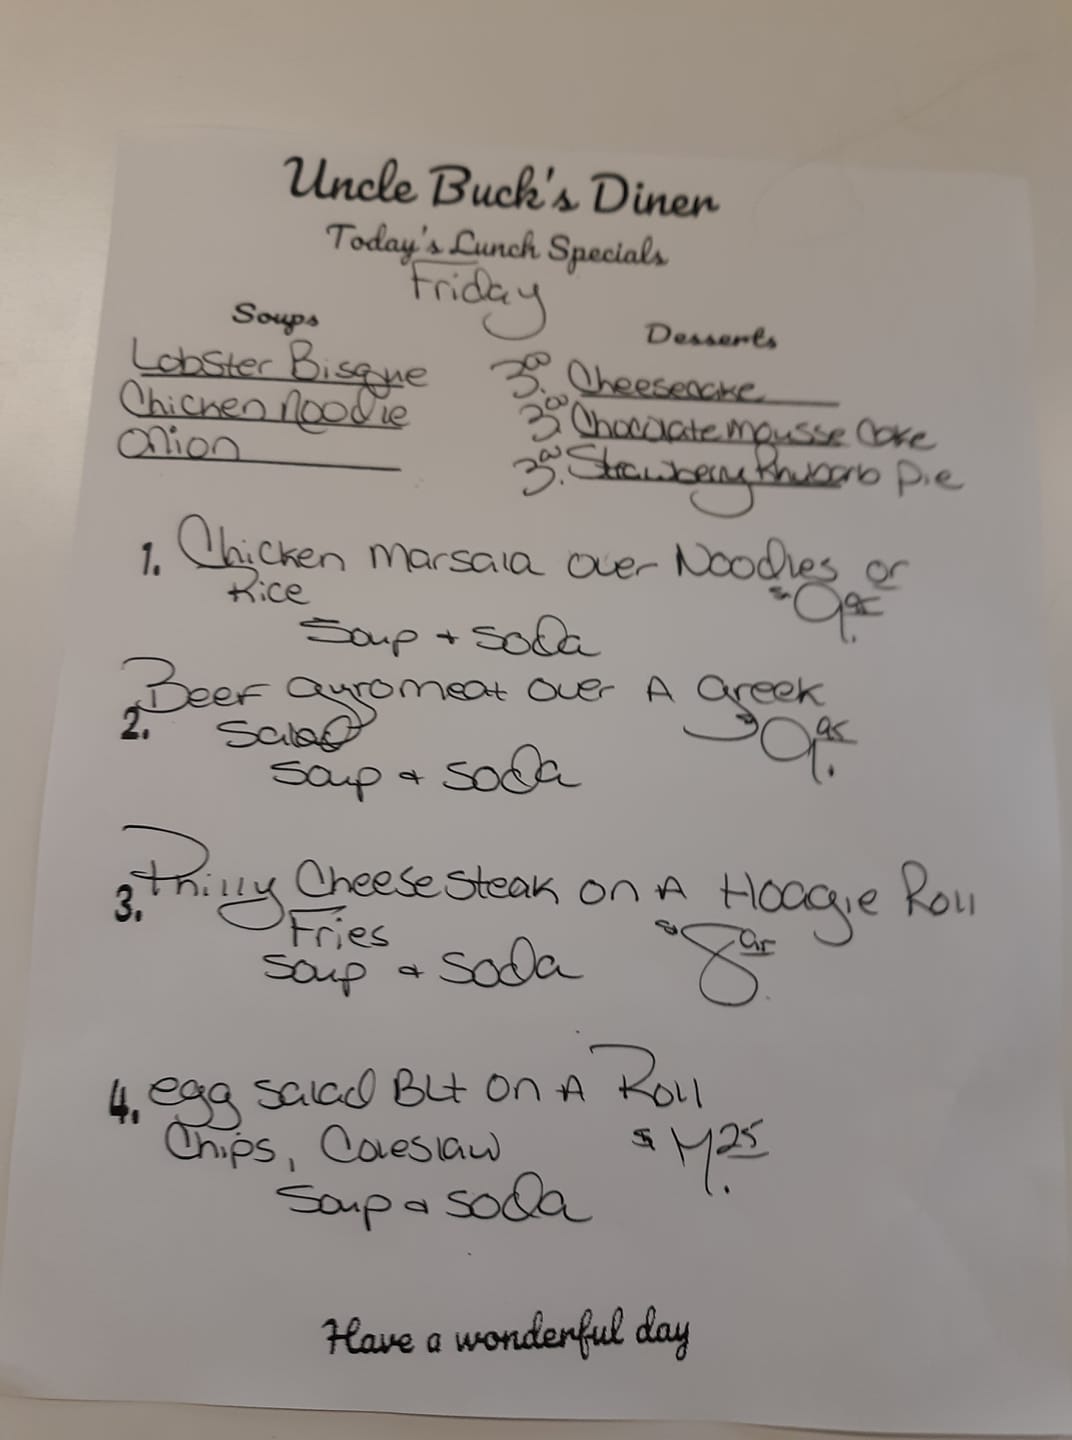 Uncle Buck's Diner
Today's Lunch Specials
Friday
Soups
Lobster Bisque
Chicken Noodle
Onion
Desserts
3.00 Cheesecake
3.00 Chocolate Mousse Cake
3.00 Strawberry Rhubarb Pie
1. Chicken Marsala over Noodles or
Rice $9.95
Soup + Soda
2. Beef Gyro meat over A Greek
Salad $9.95
Soup + Soda
3. Philly Cheese Steak on A Hoagie Roll
Fries $8.95
Soup + Soda
4. egg salad BLt on A Roll
Chips, Coleslaw $4.25
Soup + Soda
Have a wonderful day